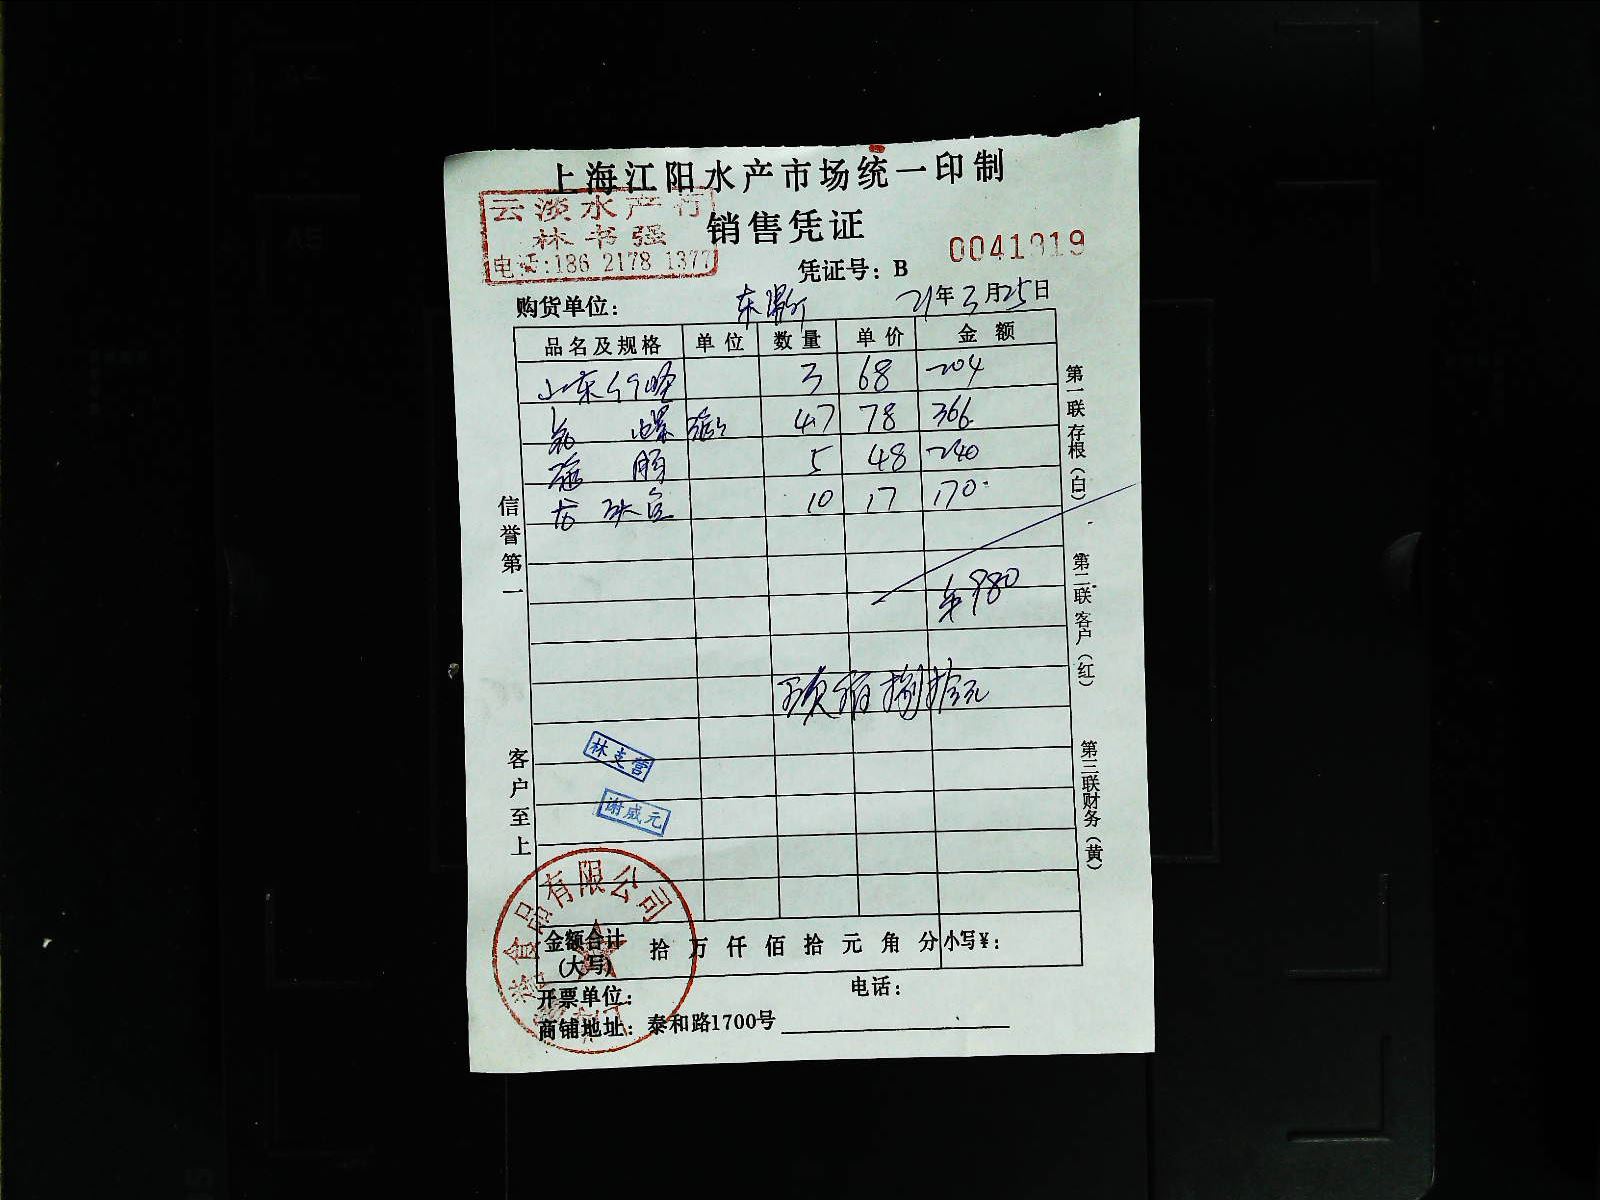 上海江阳水产市场统一印制
云淡水产行
林书强
电话:186 2178 1377
销售凭证
凭证号：B 0041919
购货单位： 21年3月25日
品名及规格 单位 数量 单价 金额
山东 3 68 204
螺 4.7 78 366
5 48 240
龙 10 17 170
980
玖佰捌拾元
信誉第一
客户至上
第一联存根（白）
第二联客户（红）
第三联财务（黄）
林支营
谢威元
食品有限公司
金额合计(大写) 拾万仟佰拾元角分 小写¥：
开票单位： 电话：
商铺地址：泰和路1700号